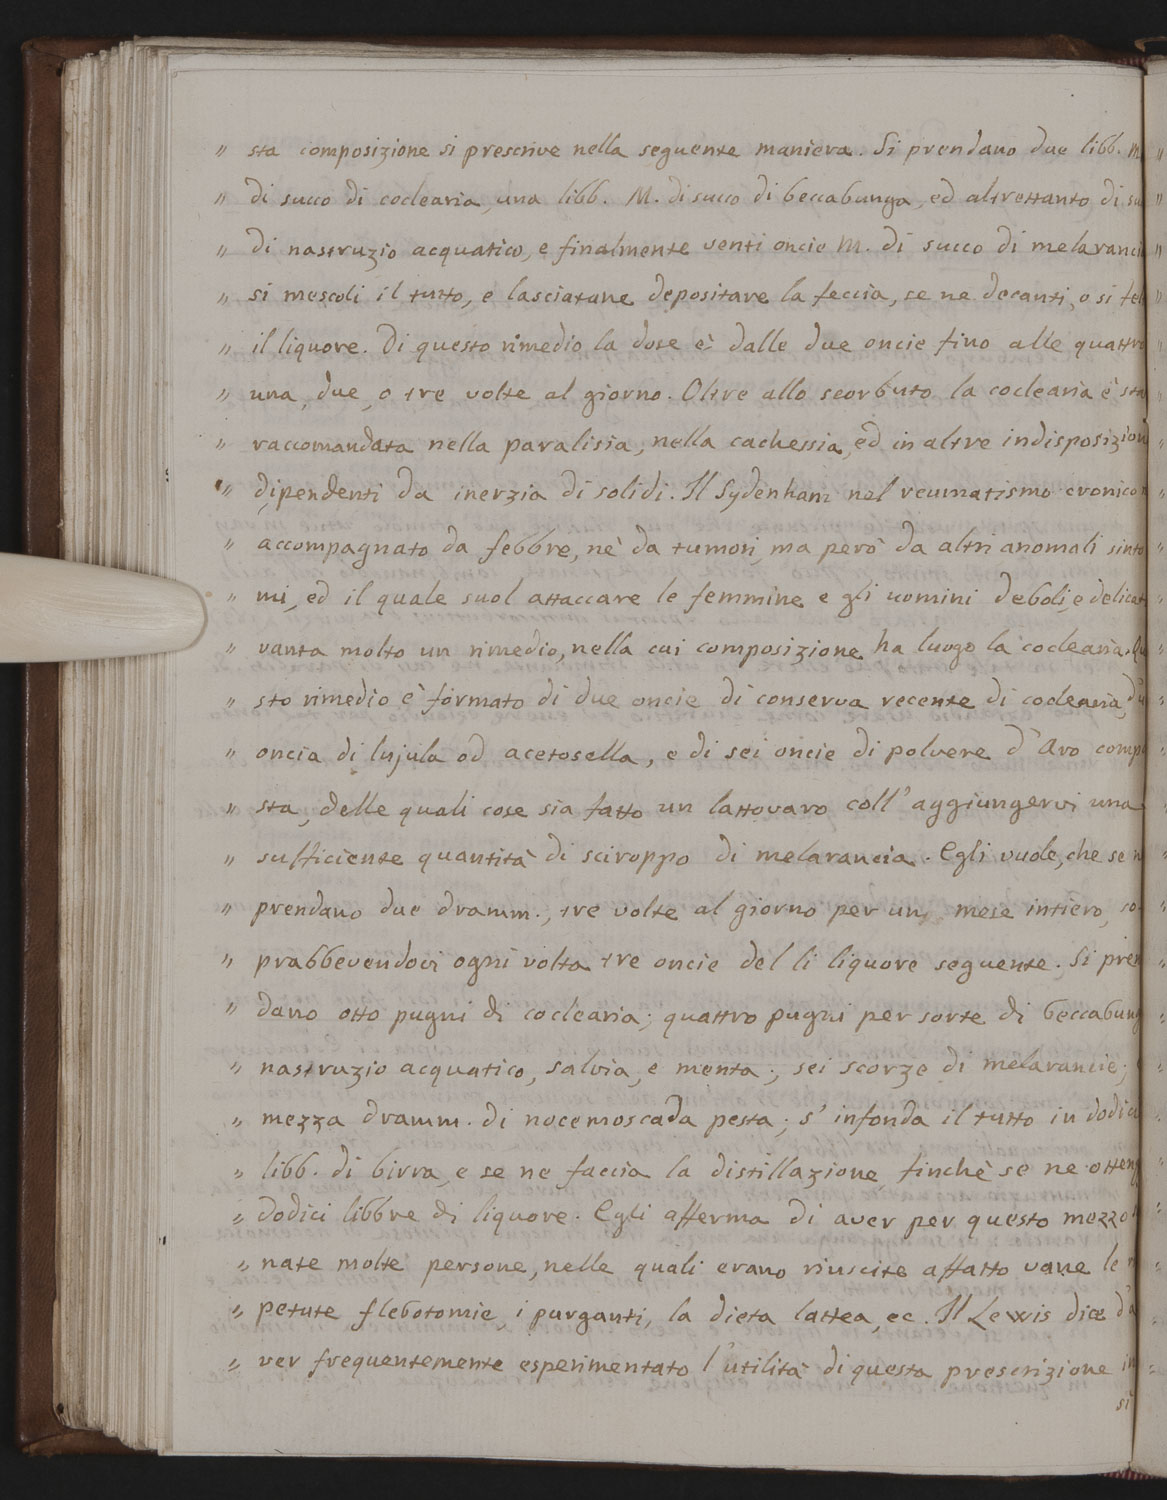 " sta composizione si prescrive nella seguente maniera. Si prendano due libb. M.
" di succo di coclearia, una libb. M. di succo di beccabunga, ed altrettanto di su
" di nasturzio acquatico, e finalmente venti oncie M. di succo di melarancie
" si mescoli il tutto, e lasciatane depositare la feccia, se ne decanti, o si fel
" il liquore. Di questo rimedio la dose è dalle due oncie fino alle quattro
" una, due, o tre volte al giorno. Oltre allo scorbuto la coclearia è sta
" raccomandata nella paralisia, nella cachessia, ed in altre indisposizioni
" dipendenti da inerzia di solidi. Il Sydenham nel reumatismo cronico n
" accompagnato da febbre, nè da tumori, ma però da altri anomali sinto
" mi, ed il quale suol attaccare le femmine e gli uomini deboli, e delicat
" vanta molto un rimedio, nella cui composizione ha luogo la coclearia. Qu
" sto rimedio è formato di due oncie di conserva recente di coclearia, d'u
" oncia di lujula od acetosella, e di sei oncie di polvere d'Aro compo
" sta, delle quali cose sia fatto un lattovaro coll'aggiungervi una
" sufficiente quantità di sciroppo di melarancia. Egli vuole, che se n
" prendano due dramm., tre volte al giorno per un mese intiero, so
" prabbevendovi ogni volta tre oncie del li liquore seguente. Si pren
" dano otto pugni di coclearia; quattro pugni per sorte di beccabung
" nasturzio acquatico, salvia, e menta; sei scorze di melarancie;
" mezza dramm. di nocemoscada pesta; s'infonda il tutto in dodici
" libb. di birra, e se ne faccia la distillazione, finchè se ne otteng
" dodici libbre di liquore. Egli afferma di aver per questo mezzo
" nate molte persone, nelle quali erano riuscite affatto vane le r
" petute flebotomie, i purganti, la dieta lattea, ec. Il Lewis dice d'a
" ver frequentemente esperimentato l'utilità di questa prescrizione in
si